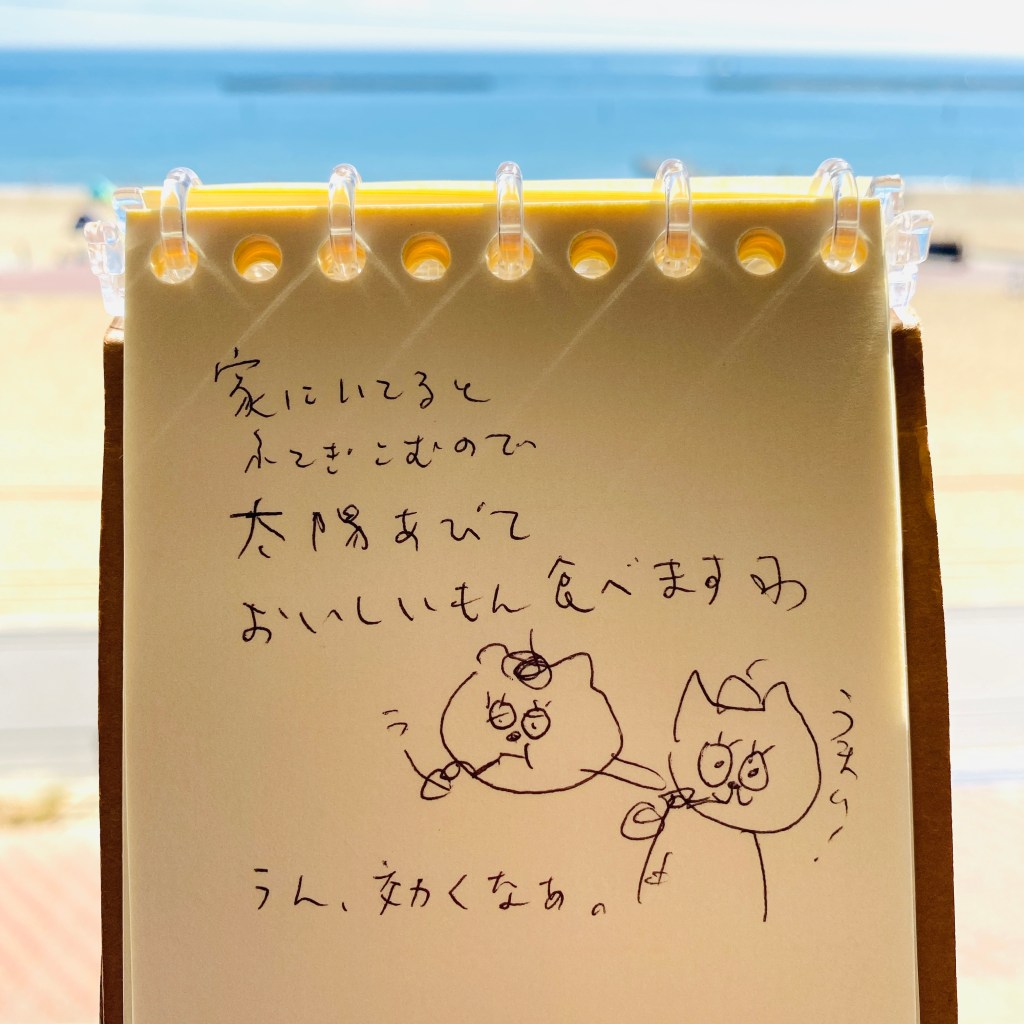 家にいてると
ふてぎこむので
太陽あびて
おいしいもん食べますわ
うん、効くなぁ。